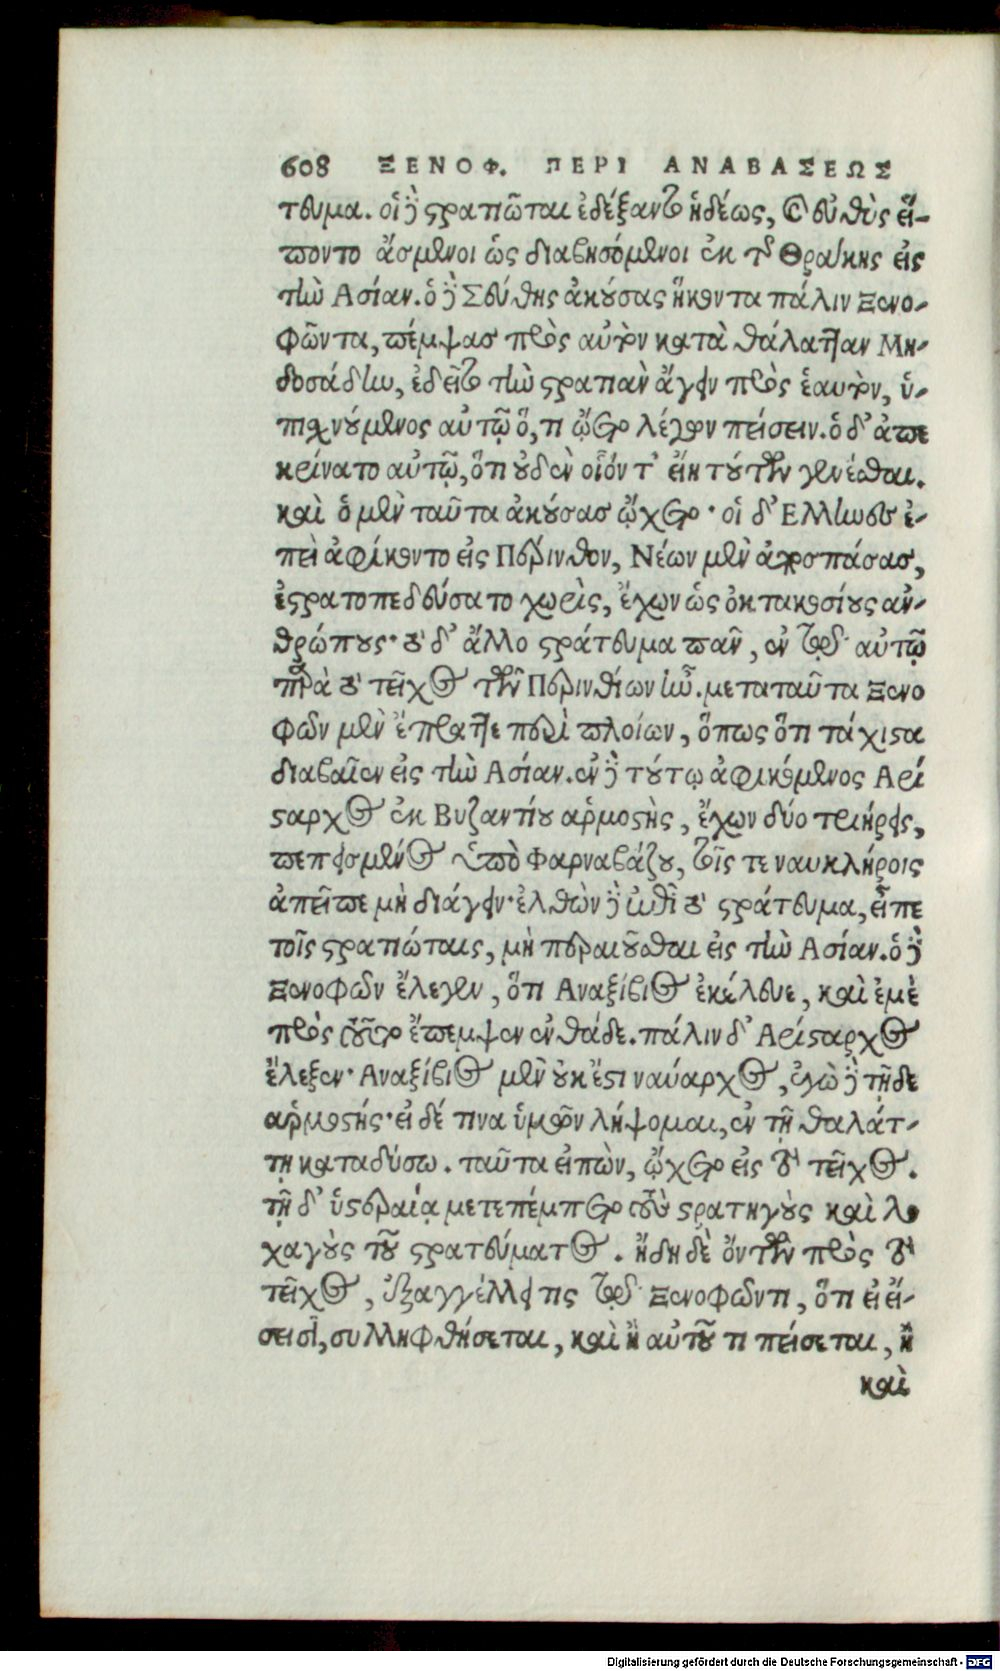 608 ΞΕΝΟΦ. ΠΕΡΙ ΑΝΑΒΑΣΕΩΣ
τευμα. οἱ δὲ στρατιῶται ἐδέξαντο ἡδέως, καὶ εὐθὺς εἵ-
ποντο ἄσμενοι ὡς διαβησόμενοι ἐκ τῆς Θρᾴκης εἰς
τὴν Ασίαν. ὁ δὲ Σεύθης ἀκούσας ἥκοντα πάλιν Ξενο-
φῶντα, πέμψας πρὸς αὐτὸν κατὰ θάλατταν Μη-
δοσάδην, ἐδεῖτο τὴν στρατιὰν ἄγειν πρὸς ἑαυτὸν, ὑ-
πισχνούμενος αὐτῷ ὅ,τι ᾤετο λέγων πείσειν. ὁ δ' ἀπε
κρίνατο αὐτῷ, ὅτι οὐδὲν οἷόν τ' εἴη τούτων γενέσθαι.
καὶ ὁ μὲν ταῦτα ἀκούσας ᾤχετο· οἱ δ' Ελληνες ἐ-
πεὶ ἀφίκοντο εἰς Πέρινθον, Νέων μὲν ἀποσπάσας,
ἐστρατοπεδεύσατο χωρὶς, ἔχων ὡς ὀκτακοσίους ἀν-
θρώπους· τὸ δ' ἄλλο στράτευμα πᾶν, ἐν τῷ αὐτῷ
παρὰ τὸ τεῖχος τῶν Περινθίων ἦν. μετὰ ταῦτα Ξενο
φῶν μὲν ἔπραττε περὶ πλοίων, ὅπως ὅτι τάχιστα
διαβαῖεν εἰς τὴν Ασίαν. ἐν δὲ τούτῳ ἀφικόμενος Αρί
σταρχος ἐκ Βυζαντίου ἁρμοστὴς, ἔχων δύο τριήρεις,
πεπεισμένος ὑπὸ Φαρναβάζου, τοῖς τε ναυκλήροις
ἀπεῖπε μὴ διάγειν· ἐλθὼν δὲ ἐπὶ τὸ στράτευμα, εἶπε
τοῖς στρατιώταις, μὴ περαιοῦσθαι εἰς τὴν Ασίαν. ὁ δὲ
Ξενοφῶν ἔλεγεν, ὅτι Αναξίβιος ἐκέλευε, καὶ ἐμὲ
πρὸς τοῦτο ἔπεμψεν ἐνθάδε. πάλιν δ' Αρίσταρχος
ἔλεξεν· Αναξίβιος μὲν οὐκ ἔστι ναύαρχος, ἐγὼ δὲ τῇδε
ἁρμοστής· εἰ δέ τινα ὑμῶν λήψομαι, ἐν τῇ θαλάτ-
τῃ καταδύσω. ταῦτα εἰπὼν, ᾤχετο εἰς τὸ τεῖχος.
τῇ δ' ὑστεραίᾳ μετεπέμπετο τοὺς στρατηγοὺς καὶ λο
χαγοὺς τοῦ στρατεύματος. ἤδη δὲ ὄντων πρὸς τὸ
τεῖχος, ἐξαγγέλλει τις τῷ Ξενοφῶντι, ὅτι εἰ εἴ-
σεισι, συλληφθήσεται, καὶ ἢ αὐτοῦ τι πείσεται, ἢ
καὶ
Digitalisierung gefördert durch die Deutsche Forschungsgemeinschaft - DFG